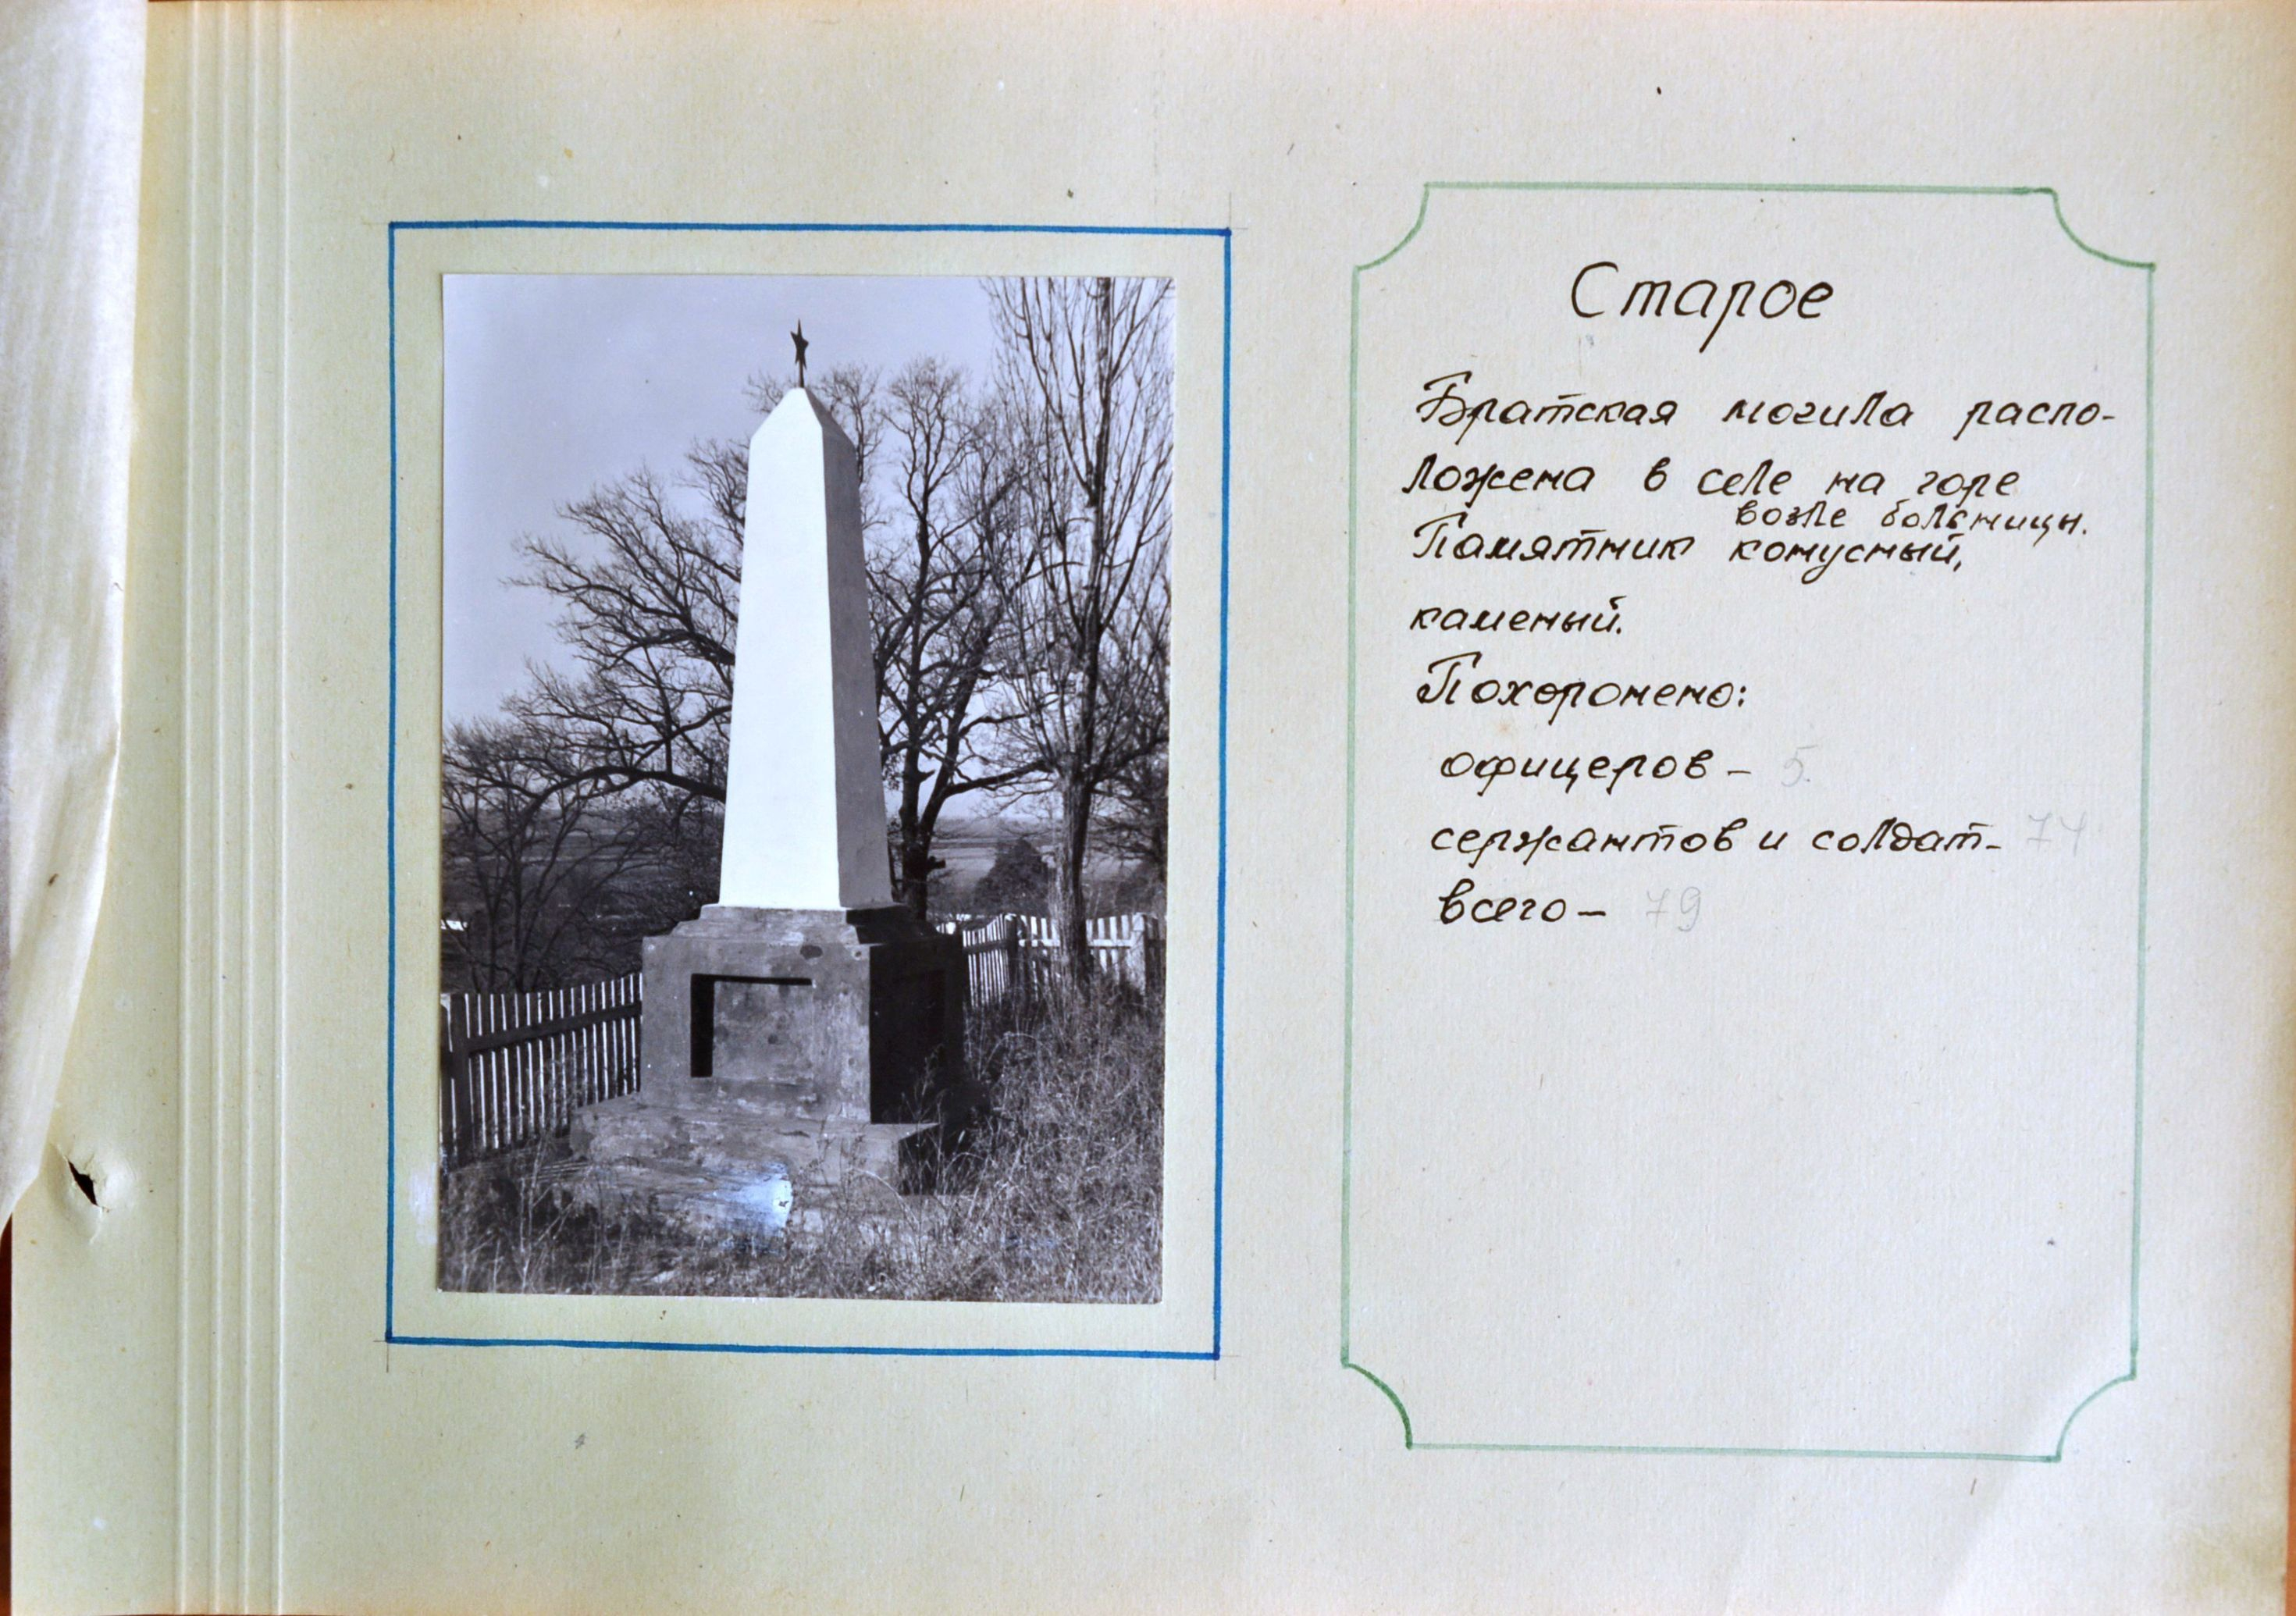 Старое
Братская могила распо-
ложена в селе на горе
возле больницы.
Памятник конусный,
каменый.
Похоронено:
офицеров – 5
сержантов и солдат – 74
всего – 79